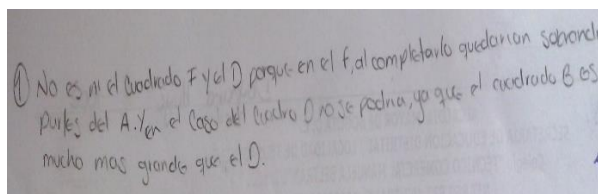 ① No es ni el Cuadrado F y el D porque en el f, al completarlo quedarian sobrand
partes del A. Y en el caso del Cuadro D no se podria, ya que el cuadrado B es
mucho mas grande que el D.